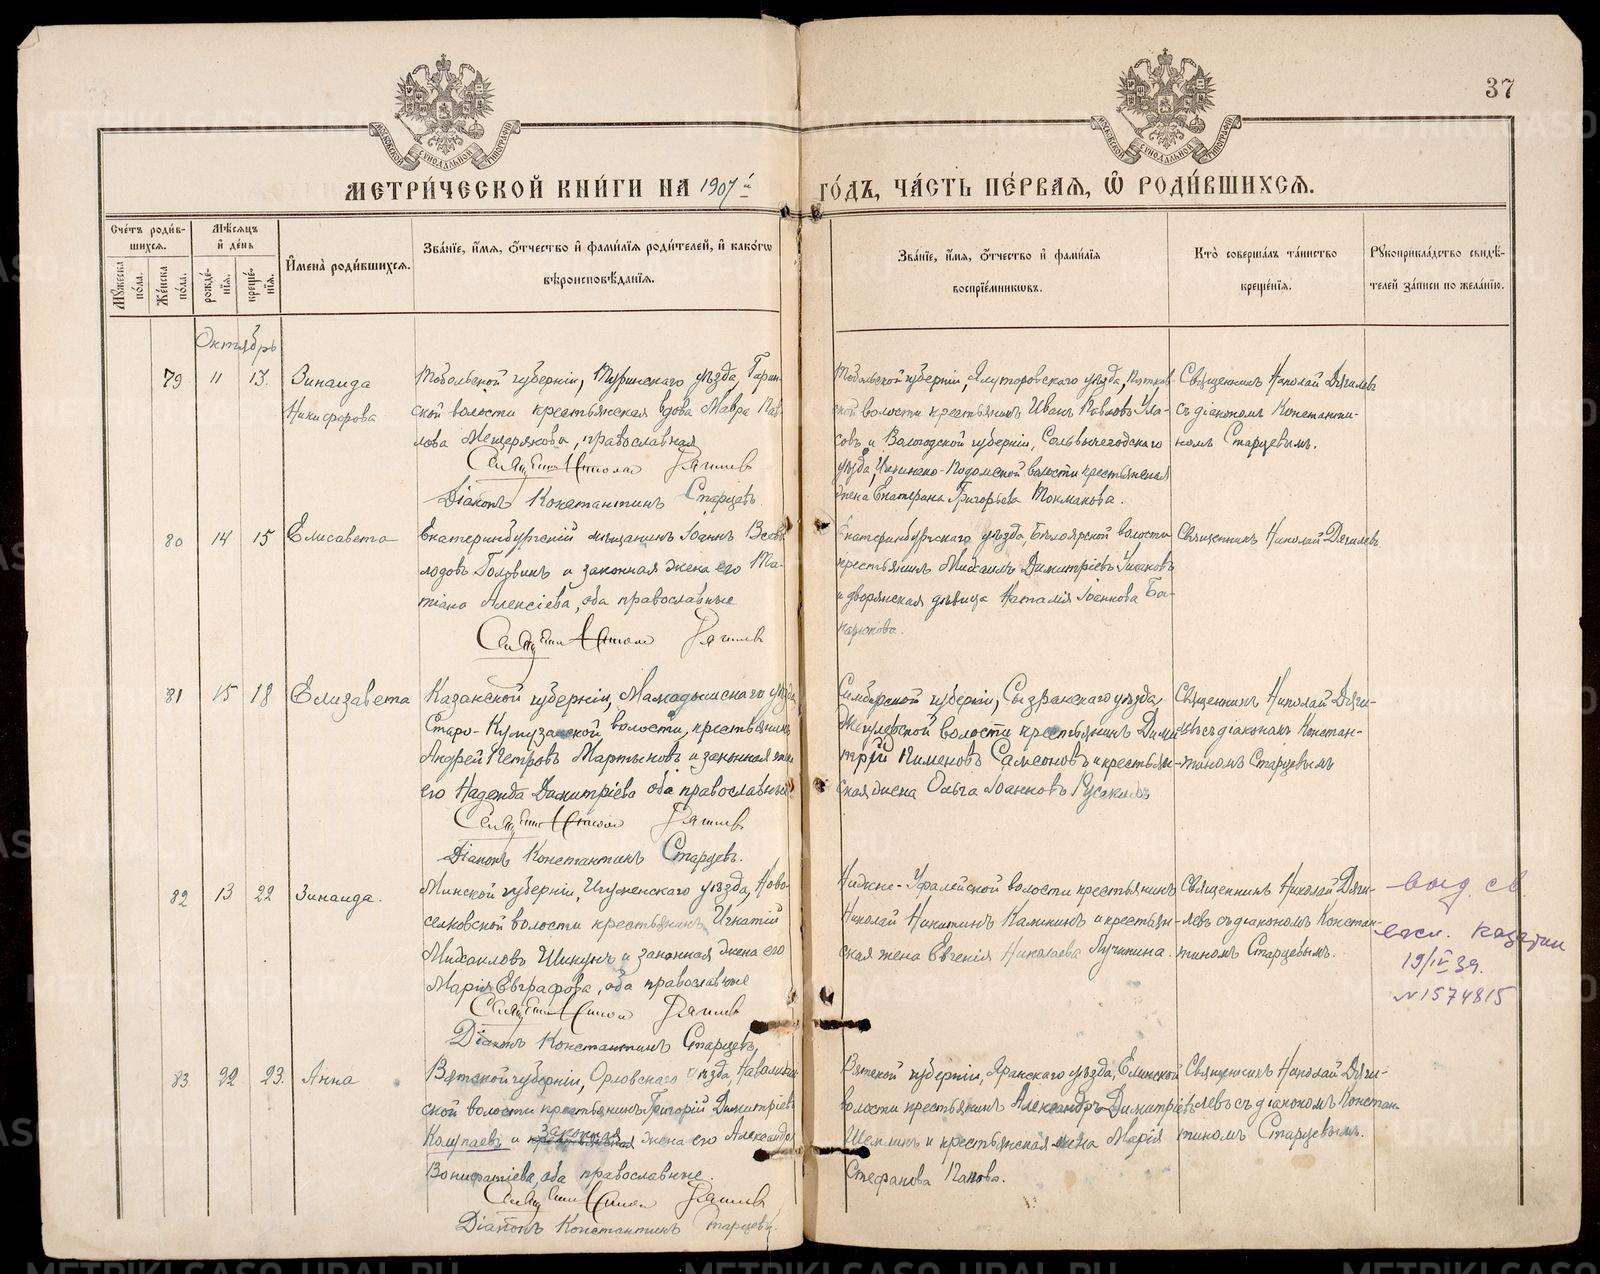 37
МОСКОВСКОЙ СѴНОДАЛЬНОЙ ТИПОГРАФІИ
МОСКОВСКОЙ СѴНОДАЛЬНОЙ ТИПОГРАФІИ
МЕТРИ́ЧЕСКОЙ КНИ́ГИ НА 1907 й
ГО́ДЪ, ЧА́СТЬ ПЕ́РВАѦ, Ѽ РОДИ́ВШИХСѦ.
Сче́тъ роди́в-
шихсѧ.
Мꙋжеска по́ла.
Же́нска по́ла.
Мѣ́сѧцъ
и҆ де́нь
рожде́-нїѧ.
креще́-нїѧ.
И҆мена̀ роди́вшихсѧ.
Зва́нїе, и҆́мѧ, о҆́тчество и҆ фами́лїѧ роди́телей, и҆ како́гѡ
вѣроисповѣ́данїѧ.
Зва́нїе, и҆́мѧ, о҆́тчество и҆ фами́лїѧ
воспрїе́мникѡвъ.
Кто̀ соверша́лъ та́инство
креще́нїѧ.
Рꙋкоприкла́дство свидѣ́-
телей за́писи по жела́нїю.
Октябрь
79 11 13. Зинаида
Никифорова
Тобольской губерніи, Туринскаго уѣзда, Гарин-
ской волости крестьянская вдова Мавра Пав-
лова Мещерякова, православная
Священ. Николай Дягилев
Діаконъ Константинъ Старцевъ
Тобольской губерніи, Ялуторовскаго уѣзда, Пятков
ской волости крестьянинъ Иванъ Павловъ Ула-
совъ и Вологодской губерніи, Сольвычегодскаго
уѣзда, Подомской волости крестьянская
жена Екатерина Григорьева Токмакова.
Священникъ Николай Дягилевъ
съ діакономъ Константи-
номъ Старцевымъ.
80 14 15 Елисавета
Екатеринбургскій мѣщанинъ Іоаннъ Всево
лодовъ Головинъ и законная жена его Та-
тіана Алексіева, оба православные
Священ. Николай Дягилев
Екатеринбургскаго уѣзда, Бѣлоярской волости
крестьянинъ Михаилъ Димитріевъ Ушаковъ
и дворянская дѣвица Наталія Іоаннова Ба-
Священникъ Николай Дягилевъ
81 15 18 Елизавета
Казанской губерніи, Мамадышскаго уѣзда
Старо-Кумузанской волости, крестьянинъ
Андрей Петровъ Мартыновъ и законная жена
его Надежда Димитріева оба православные
Священ. Николай Дягилев
Діаконъ Константинъ Старцевъ.
Симбирской губерніи, Сызранскаго уѣзда
Жегулевской волости крестьянинъ Дими
трій Пименовъ Самсоновъ и крестьян-
ская жена Ольга Іоаннова Русакова
Священникъ Николай Дяги-
левъ съ діакономъ Констан-
тиномъ Старцевымъ
82 13 22 Зинаида.
Минской губерніи, Игуменскаго уѣзда, Ново-
селковской волости крестьянинъ Игнатій
Михаиловъ Шикунъ и законная жена его
Марія Евграфова, оба православные
Священ. Николай Дягилев
Діаконъ Константинъ Старцевъ,
Нижне-Уфалейской волости крестьянинъ
Николай Никитинъ Калинкинъ и крестьян-
ская жена Евгенія Николаева Лучинина.
Священникъ Николай Дяги-
левъ съ діакономъ Констан-
тиномъ Старцевымъ.
выд. св
19/IV 39.
№1574815
83 22 23. Анна
Вятской губерніи, Орловскаго уѣзда, Навалихин
ской волости крестьянинъ Григорій Димитріевъ
Колупаевъ и законная жена его Александра
Вонифатіева, оба православные.
Священ. Николай Дягилев
Діаконъ Константинъ Старцевъ.
Вятской губерніи, Яранскаго уѣзда, Елинской
волости крестьянинъ Александръ Димитріевъ
и крестьянская жена Марія
Стефанова Попова.
Священникъ Николай Дяги-
левъ съ діакономъ Констан
тиномъ Старцевымъ.
METRIKI.GASO-URAL.RU